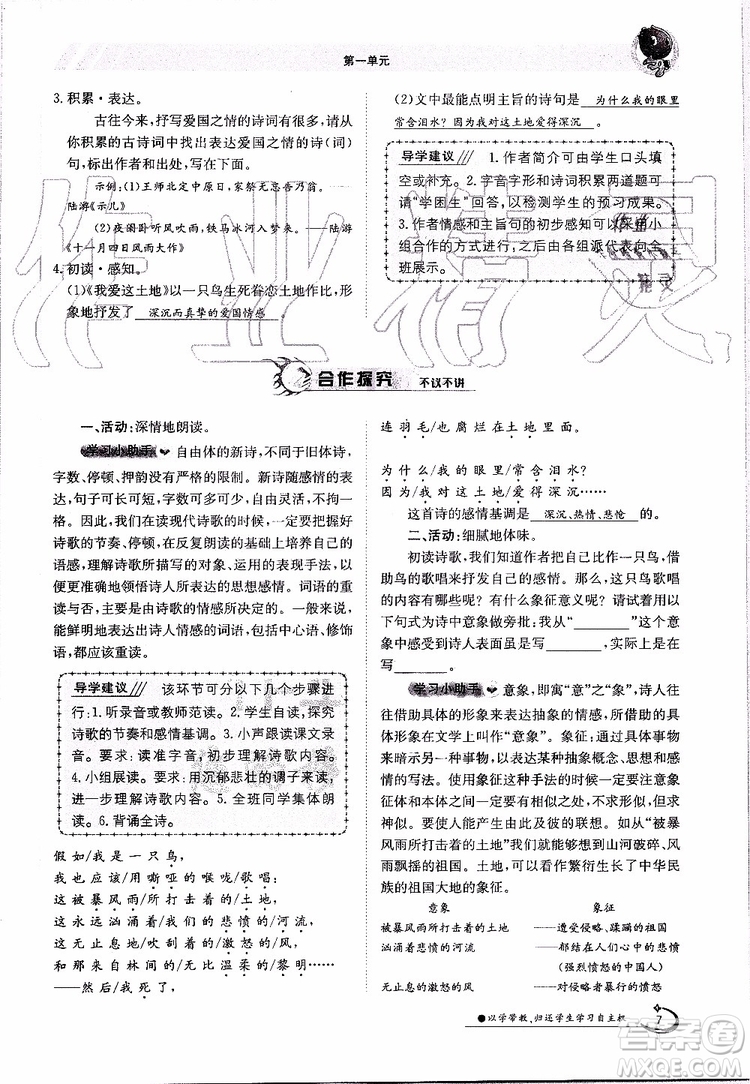 第一单元
3. 积累·表达。
古往今来，抒写爱国之情的诗词有很多，请从
你积累的古诗词中找出表达爱国之情的诗(词)
句，标出作者和出处，写在下面。
示例：(1)王师北定中原日，家祭无忘告乃翁。
陆游《示儿》
(2)夜阑卧听风吹雨，铁马冰河入梦来。——陆游
《十一月四日风雨大作》
4. 初读·感知。
(1)《我爱这土地》以一只鸟生死眷恋土地作比，形
象地抒发了 深沉而真挚的爱国情感
(2)文中最能点明主旨的诗句是 为什么我的眼里
常含泪水？因为我对这土地爱得深沉
导学建议 1. 作者简介可由学生口头填
空或补充。2. 字音字形和诗词积累两道题可
请“学困生”回答，以检测学生的预习成果。
3. 作者情感和主旨句的初步感知可以采用小
组合作的方式进行，之后由各组派代表向全
班展示。
合作探究 不议不讲
一、活动：深情地朗读。
学习小助手 自由体的新诗，不同于旧体诗，
字数、停顿、押韵没有严格的限制。新诗随感情的表
达，句子可长可短，字数可多可少，自由灵活，不拘一
格。因此，我们在读现代诗歌的时候，一定要把握好
诗歌的节奏、停顿，在反复朗读的基础上培养自己的
语感，理解诗歌所表现的对象、运用的表现手法，以
便更准确地领悟诗人所表达的思想感情。词语的重
读与否，主要是由诗歌的情感所决定的。一般说来，
能鲜明地表达出诗人情感的词语，包括中心语、修饰
语，都应该重读。
导学建议 该环节可分以下几个步骤进
行：1. 听录音或教师范读。2. 学生自读，探究
诗歌的节奏和感情基调。3. 小声跟读课文录
音。要求：读准字音，初步理解诗歌内容。
4. 小组展读。要求：用沉郁悲壮的调子来读，
进一步理解诗歌内容。5. 全班同学集体朗
读。6. 背诵全诗。
假如/我是一只鸟，
我也应该/用嘶哑的喉咙/歌唱：
这被暴风雨/所打击着的/土地，
这永远汹涌着/我们的悲愤的/河流，
这无止息地/吹刮着的/激怒的/风，
和那来自林间的/无比温柔的/黎明……
——然后/我死了，
连羽毛/也腐烂在土地里面。
为什么/我的眼里/常含泪水？
因为/我对这土地/爱得深沉……
这首诗的感情基调是 深沉、热情、悲怆 。
二、活动：细腻地体味。
初读诗歌，我们知道作者把自己比喻一只鸟，借
助鸟的歌唱来抒发自己的感情。那么，这只鸟歌唱
的内容有哪些呢？有什么象征意义呢？请试着用以
下句式为诗中意象做旁批：我从________这个意
象中读到诗人表面是写________，实际上是在
写________。
学习小助手 意象，即寓“意”之“象”，诗人往
往借助具体的形象来表达抽象的情感，这个具体的
形象在文学上叫作“意象”。象征：某个具体事物表
现出的某种意义，用某种事物代表某种抽象概念、思想和感
情的写法。当然，使用象征这种手法并不是随意的，
象征体和本体之间一定要有相似之处，或形似，或
神似。要能使人产生由此及彼的联想。如由“被暴
风雨所打击着的土地”可以联想到山河破碎、风
雨飘摇的祖国。土地，可以看作繁衍生长了中华民
族的祖国大地的象征。
意象 象征
被暴风雨所打击着的土地——遭受侵略、蹂躏的祖国
汹涌着悲愤的河流——郁结在人们心中的悲愤
(强烈愤怒的中国人民)
无止息的激怒的风——对侵略者暴行的愤怒
以学带教、归还学生学习自主权
7
作业精灵
答案圈
MXQE.COM